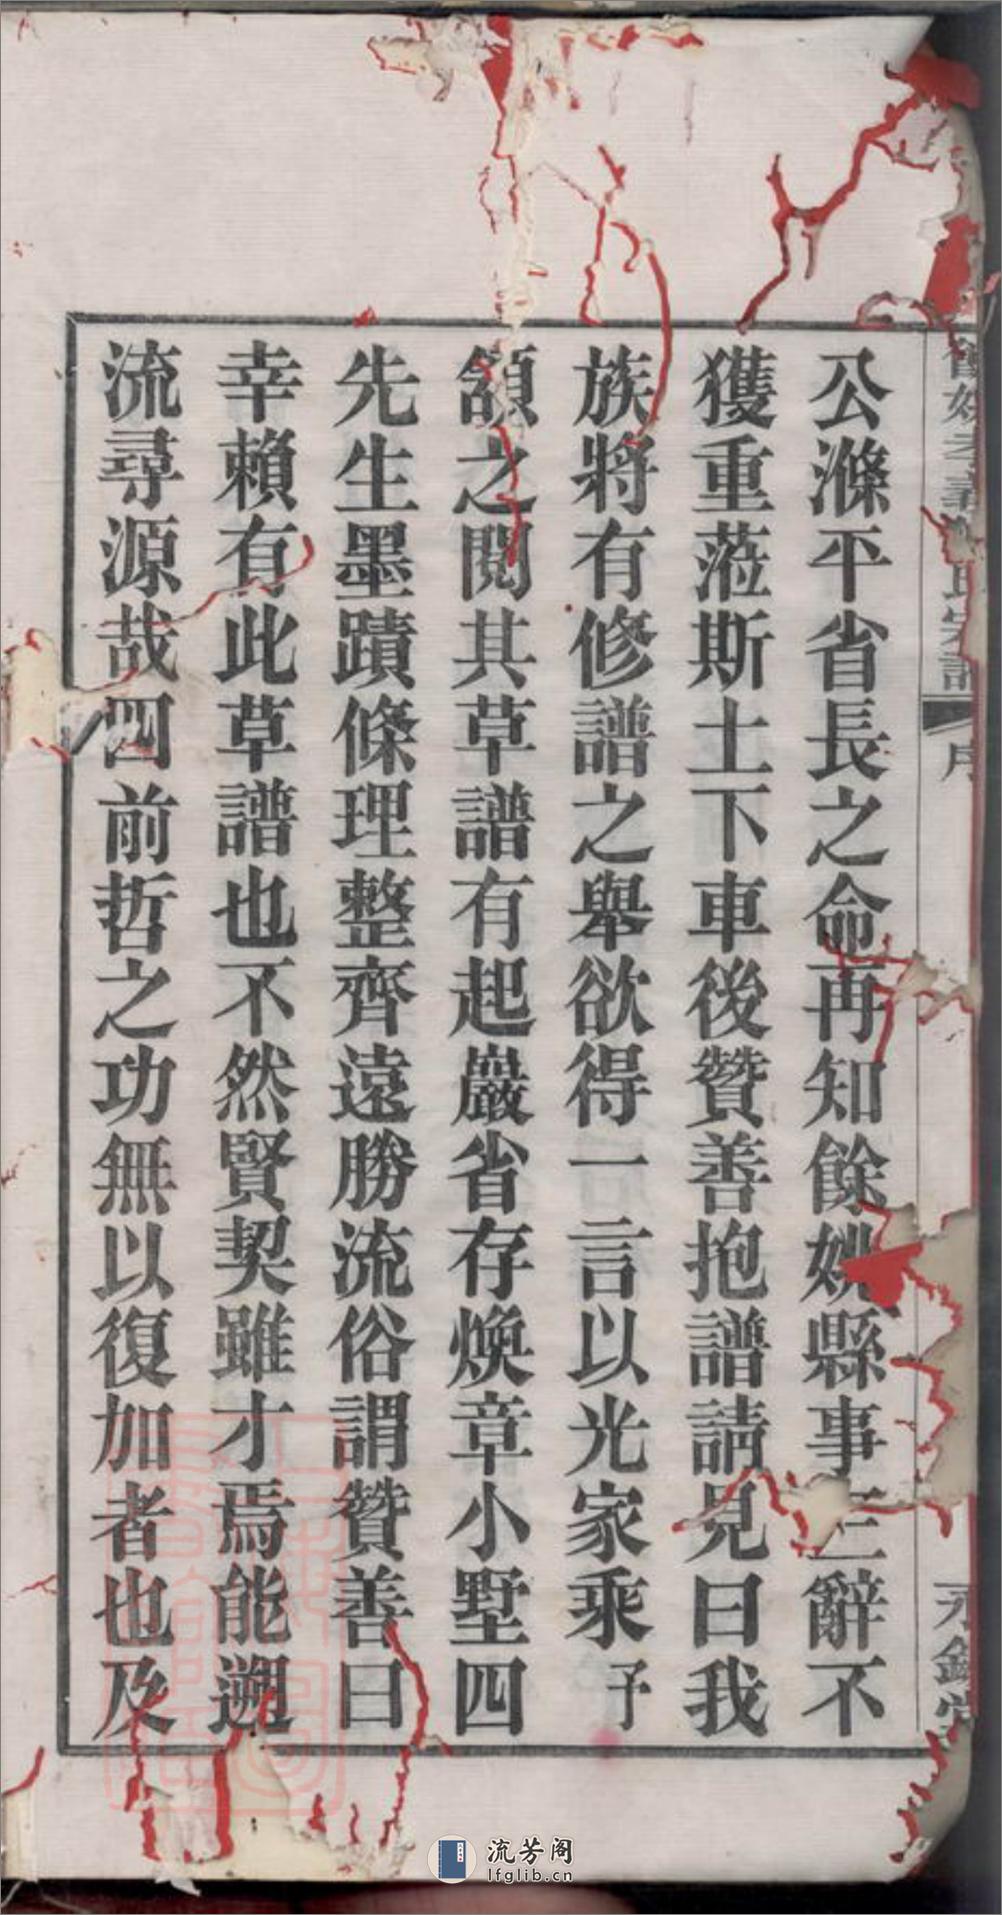 公滌平省長之命再知餘姚縣事三辭不
獲重蒞斯土下車後贊善抱譜請見曰我
族將有修譜之舉欲得一言以光家乘予
頷之閱其草譜有起巖省存煥章小墅四
先生墨蹟條理整齊遠勝流俗謂贊善曰
幸賴有此草譜也不然賢契雖才焉能遡
流尋源哉四前哲之功無以復加者也及
序
流芳阁
lfglib.cn